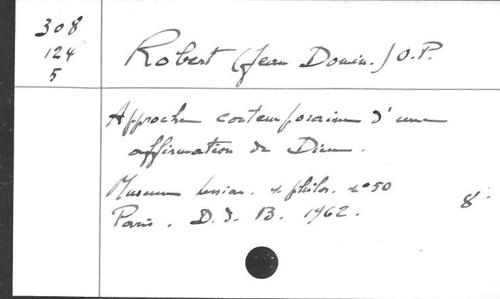 308
124
5
Robert (Jean Domin.) O.P.
Approche contemporaine d'une
affirmation de Dieu.
Museum lessian. s. philos. n° 50
Paris. D. d. B. 1962.
8°